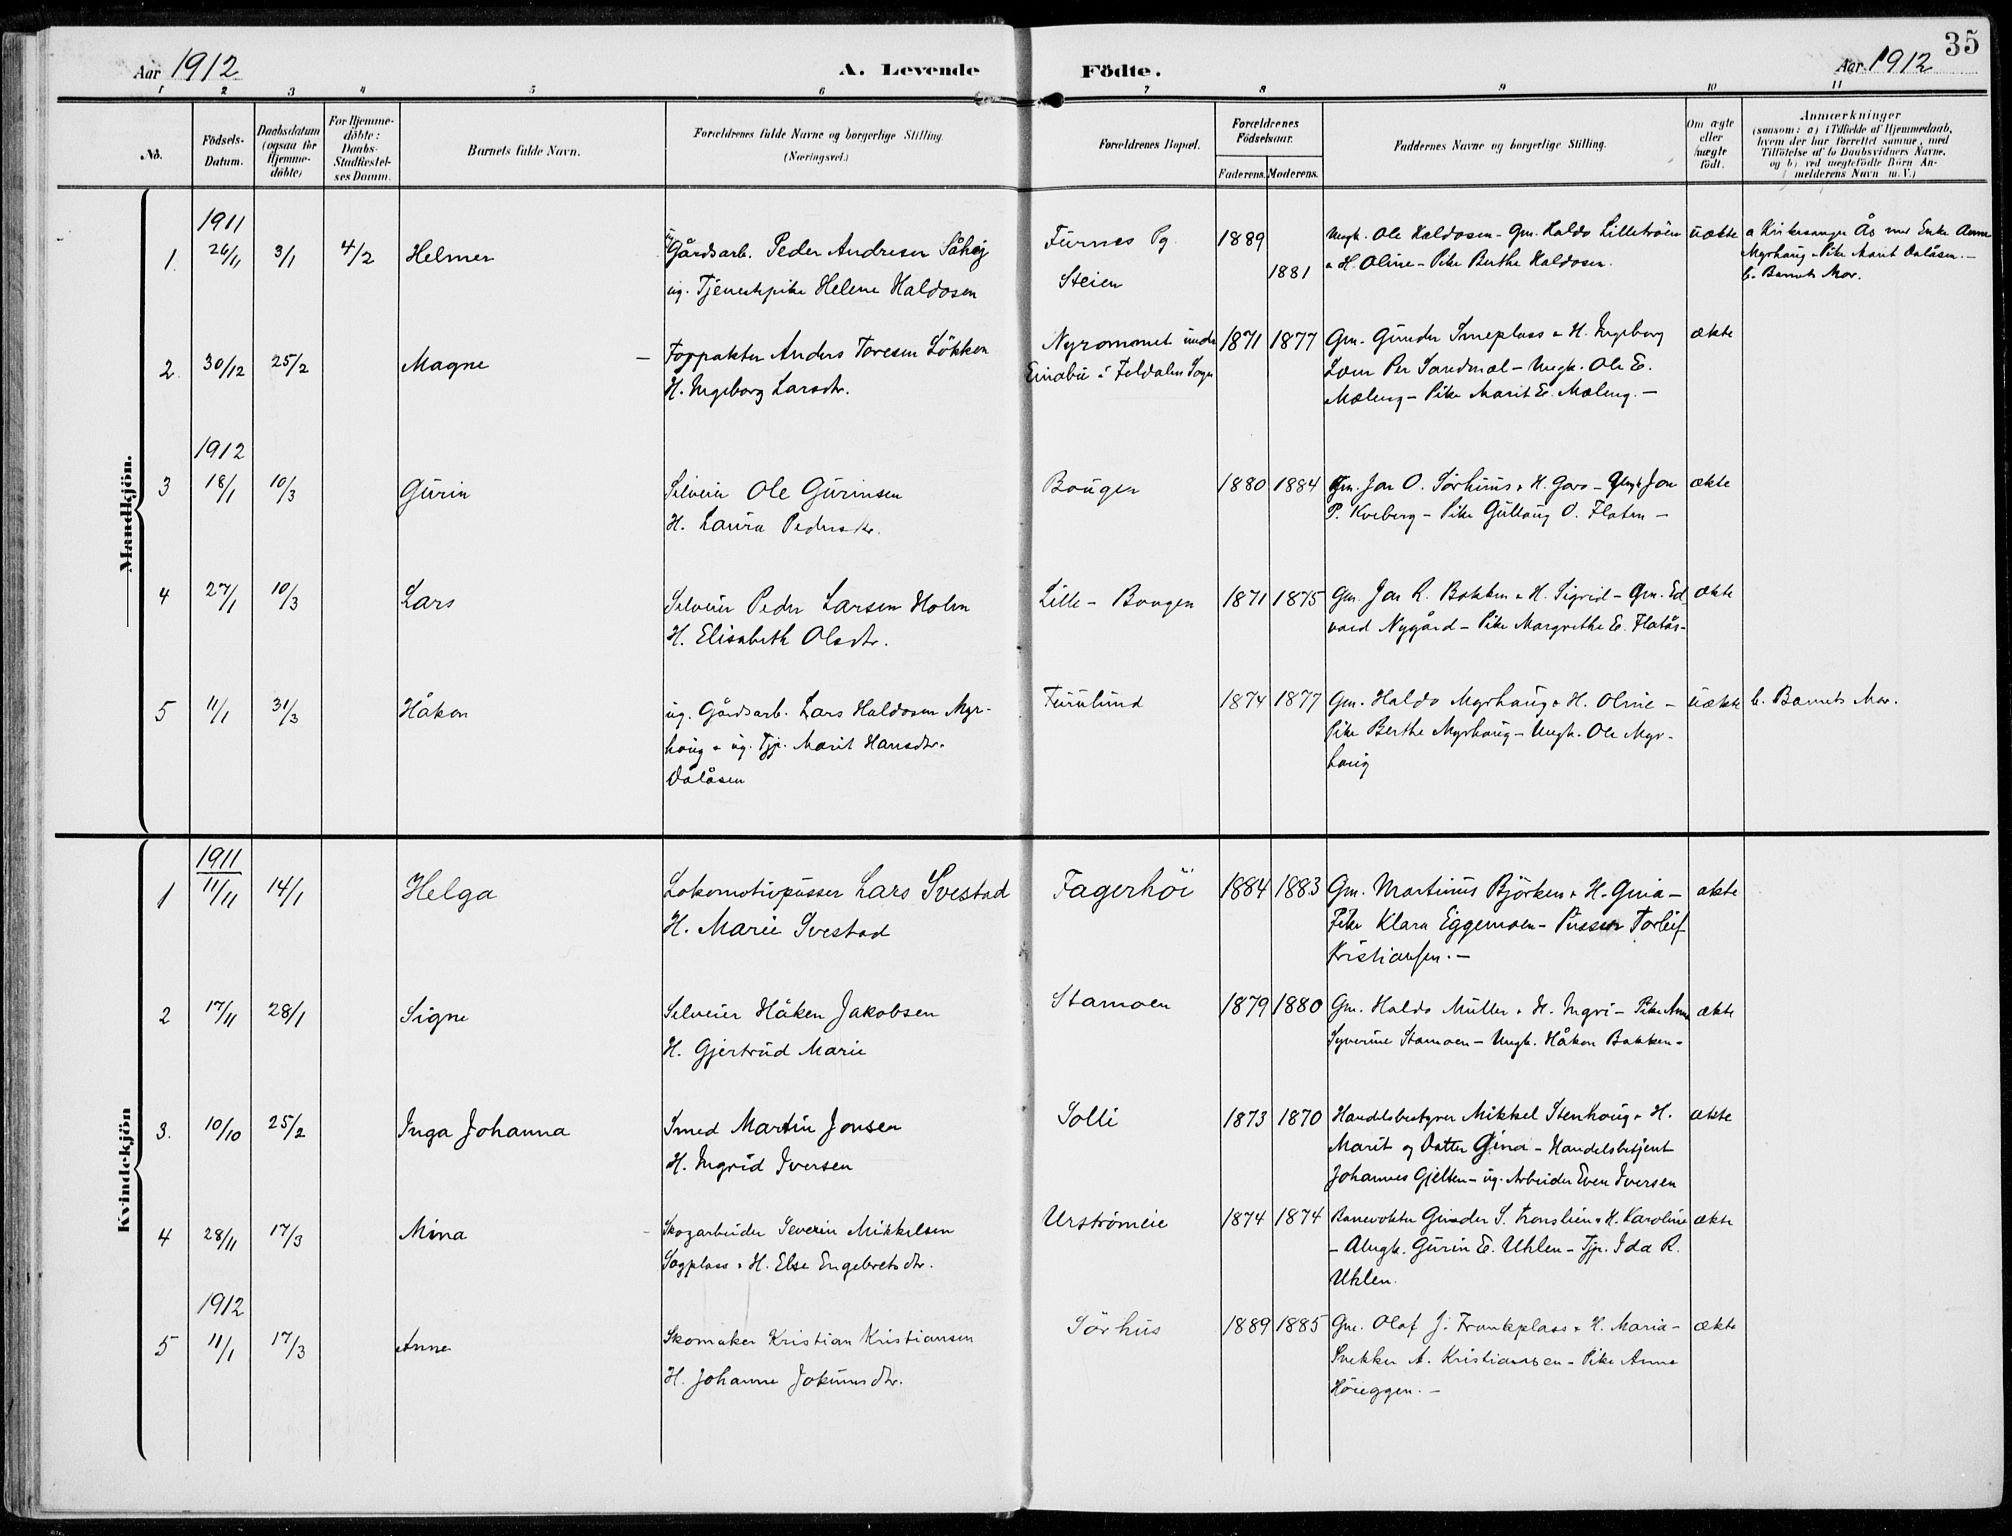 35
Aar 1912
A. Levende
Födte.
Aar 1912
1 2 3 4 5 6 7 8 9 10 11
No.
Födsels-
Datum.
Daabsdatum
(ogsaa for
Hjemme-
döbte)
For Hjemme-
döbte:
Daabs-
Stadfæstel-
ses Datum.
Barnets fulde Navn.
Forældrenes fulde Navne og borgerlige Stilling.
(Næringsvei.)
Forældrenes Bopæl.
Forældrenes
Födselsaar.
Faderens. Moderens.
Faddernes Navne og borgerlige Stilling.
Om ægte
eller
uægte
födt.
Anmærkninger
(saasom: a) i Tilfælde af Hjemmedaab,
hvem der har forrettet samme, med
Tilföielse af to Daabsvidners Navne,
og b) ved uægtefödte Börn An-
melderens Navn m. V.)
Mandkjön.
1911
1. 26/11 3/1 4/2 Helmer
ug. Gårdsarb. Peder Andresen Såhøj
ug. Tjenestpike Helene Haldosen
Furnes Pg.
Steien
1889
1881
Ungk. Ole Haldosen - Gm. Haldo Lilleströen
& H. Oline - Pike Berthe Haldosen.
uækte
a Kirkesanger Ås med Enke Anne
Myrhaug - Pike Marit Dalåsen. -
b. Barnets Mor.
2. 30/12 25/2 Magne
Forpakter Anders Toresen Løkken
H. Ingeborg Larsdtr.
Nyrommet under
Einabu i Foldalen Sogn
1871 1877
Gm. Gunder Smeplass & H. Ingeborg
Per Sandmæl - Ungk. Ole E.
Mæleng - Pike Marit E. Mæleng. -
ækte
1912
3 18/1 10/3 Gurin
Selveier Ole Gurinsen
H. Laura Pedersdtr.
Bougen
1880 1884
Gm. Jon O. Sörhuus & H. Goro - Ungk Jon
P. Kveberg - Pike Gullaug O. Flaten -
ækte
4 27/1 10/3 Lars
Selveier Peder Larsen Holm
H. Elisabeth Olsdtr.
Lille-Bougen
1871 1875
Gm. Jon R. Bakken & H. Sigrid - Gm. Ed-
vard Nygård - Pike Margrethe E. Flatås -
ækte
5 11/1 31/3 Håkon
ug. Gårdsarb. Lars Haldosen Myr-
haug & ug. Tjp. Marit Hansdtr.
Dalåsen
Furulund
1874 1877
Gm. Haldo Myrhaug & H. Oline -
Pike Berthe Myrhaug - Ungk. Ole Myr-
haug
uækte
b. Barnets Mor.
Kvindekjön
1911
1 11/11 14/1 Helga
Lokomotivpusser Lars Svestad
H. Marie Svestad
Fagerhöi
1884 1883
Gm. Martinius Björken & H. Gina -
Pike Klara Eggemoen - Pusser Torleif
Kristiansen. -
ækte
2 17/11 28/1 Signe
Selveier Håken Jakobsen
H. Gjertrud Marie
Stamoen
1879 1880
Gm. Haldo Müller & H. Ingri - Pike Anne
Syverine Stamoen - Ungk. Håkon Bakken -
ækte
3. 10/10 25/2 Inga Johanna
Smed Martin Jonsen
H. Ingrid Iversen
Solli
1873 1870
Handelsbestyrer Mikkel Stenhaug & H.
Marit og Datter Gina - Handelsbetjent
Johannes Gjelten - ug. Arbeider Even Iversen
ækte
4 28/11 17/3 Mina
Skogarbeider Severin Mikkelsen
Sagplass & H. Else Engebretsdtr.
Urströmeie
1874 1874
Banevokter Gunder S. Tronslien & H. Karoline
- Ungk. Gurin E. Uhlen - Tjp. Ida R.
Uhlen.
ækte
1912
5 11/1 17/3 Anne
Skomaker Kristian Kristiansen
H. Johanne Jokumsdtr.
Sörhus
1889 1885
Gm. Olaf J. Frankplass & H. Maria -
Snekker A. Kristiansen - Pike Anne
Höieggen. -
ækte